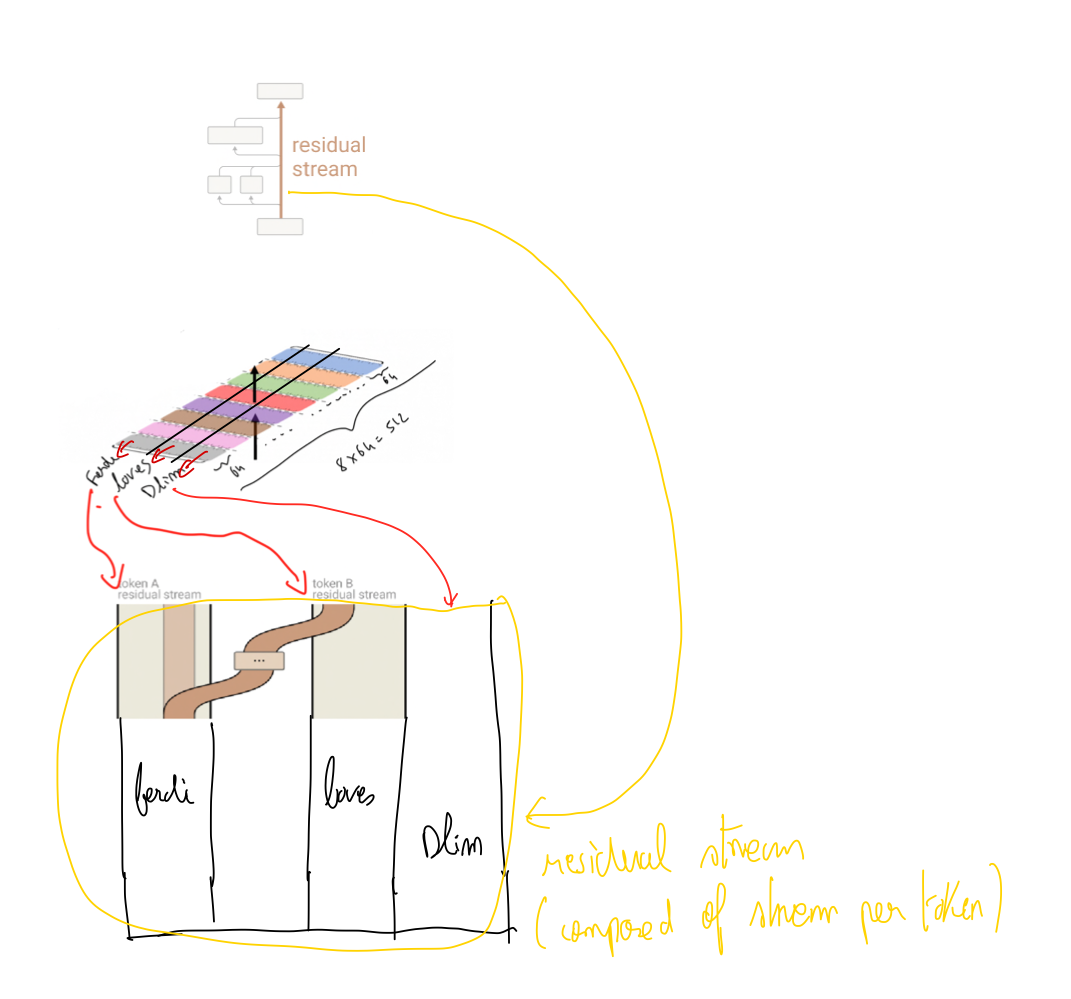 residual
stream
64
8x64 = 512
Ferdi
loves
Dlim
64
token A
residual stream
token B
residual stream
...
ferdi
loves
Dlim
residual stream
(composed of stream per token)